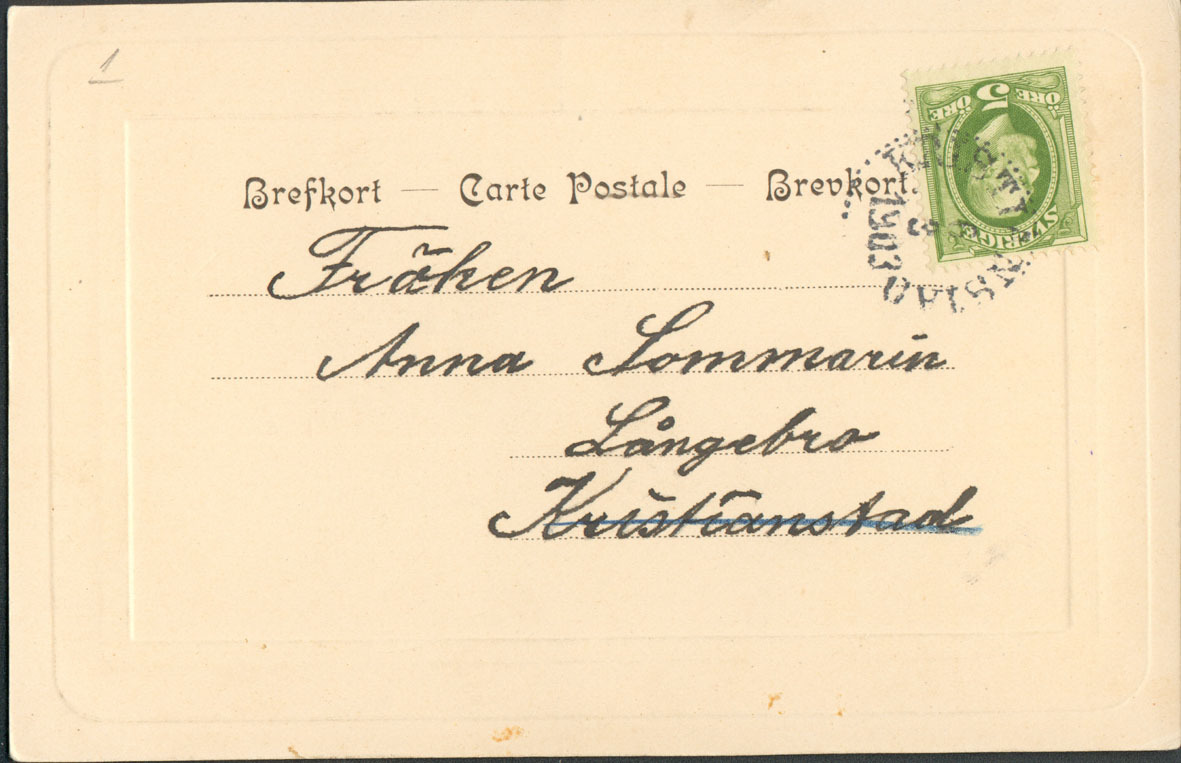 1
Brefkort — Carte Postale — Brevkort.
5
ÖRE ÖRE
SVERIGE
1903
Fröken
Anna Sommarin
Långebro
Kristianstad